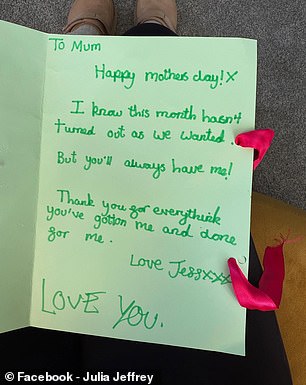 To Mum
Happy mothers day! X
I know this month hasn't
turned out as we wanted.
But you'll always have me!
Thank you for everythink
you've gotton me and done
for me.
Love Jessxxx
LOVE YOU.
© Facebook - Julia Jeffrey